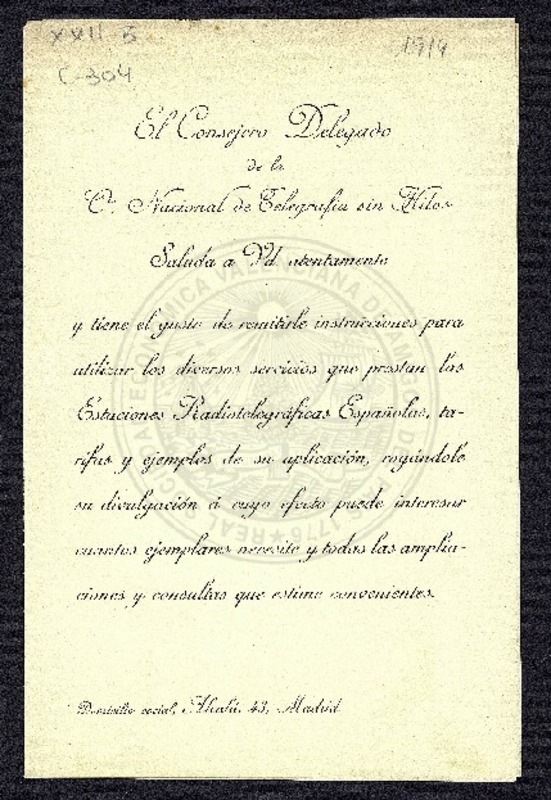 XXII 5
1914
C-304
El Consejero Delegado
de la
Cª Nacional de Telegrafía sin Hilos
Saluda a Vd. atentamente
y tiene el gusto de remitirle instrucciones para
utilizar los diversos servicios que prestan las
Estaciones Radiotelegráficas Españolas, ta-
rifas y ejemplos de su aplicación, rogándole
su divulgación á cuyo efecto puede interesar
cuantos ejemplares necesite y todas las amplia-
ciones y consultas que estime convenientes.
Domicilio social, Alcalá, 43, Madrid
REAL SOCIEDAD ECONÓMICA VALENCIANA DE AMIGOS DEL PAÍS 1776